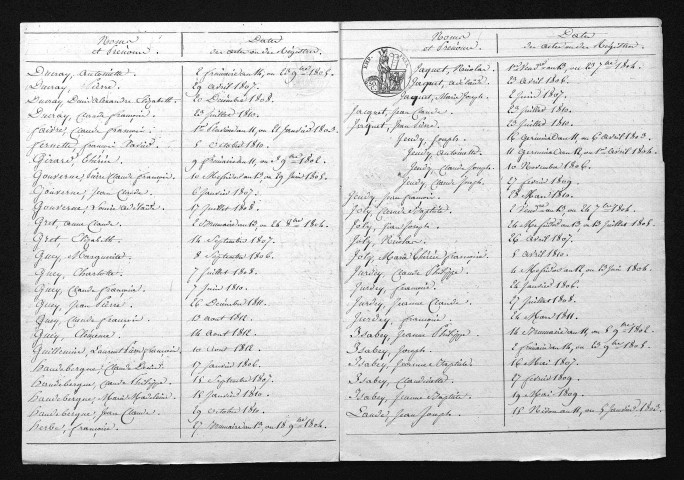 Noms et Prénoms. Date des actes ou du Registre.
Ducray, Antoinette 2 frimaire an 14, ou 23 9bre 1805.
Ducray, Pierre 29 avril 1807.
Ducray Denis Alexandre Elizabeth 20 Décembre 1808.
Ducray, Claude françois 23 Juillet 1810.
faivre, Claude françois 1er Pluviose an 11, ou 21 Janvier 1803.
fernette, françois Xavier 5 Octobre 1810.
Girard, Thérèse 9 frimaire an
Gouverne, Claude françois 10 Messidor an 13, ou 29 Juin 1805.
Gouverne, Jean Claude 6 Janvier 1807.
Gouverne, Louise Adélaïde 17 Juillet 1808.
Gret, Jeanne Claude 2 Brumaire an 13, ou 24 8bre 1804.
Gret, Elizabeth 14 Septembre 1807.
Guey, Marguerite 8 Septembre 1806.
Guey, Charlotte 7 Juillet 1808.
Guey, Claude françois 7 Juin 1810.
Guey, Jean Pierre 26 Décembre 1811.
Guey, Claude françois 13 août 1812.
Guey, Etienne 14 août 1812.
Guillemin, Laurent françois 10 août 1812.
haudebergue, Claude Denis 17 Janvier 1806.
haudebergue, Claude Philippe 15 Septembre 1807.
haudebergue, Marie Madeleine 15 Janvier 1810.
haudebergue, Jean Claude 29 Octobre 1810.
herbe, françoise 27 Brumaire an 13, ou 18 9bre 1804.
Noms et Prénoms. Date des actes ou du Registre.
Jaquet, Nicolas 1er Vend.re an 13, ou 23 7bre 1804.
Jaquet, Adélaïde 23 avril 1806.
Jacquet, Marie Joseph 2 Juin 1807.
Jacquet, Jean Claude 23 Juillet 1810.
Jacquet, Jean Pierre 23 Juillet 1810.
Jeudy, Joseph 16 Germinal an 11, ou 6 avril 1803.
Jeudy, Antoinette 11 Germinal an 12, ou 1er avril 1804.
Jeudy, Claude Joseph 10 Novembre 1806.
Jeudy, Claude Joseph 27 février 1809.
Jeudy, Jean françois 28 Mars 1810.
Joly, Jeanne Baptiste 2 Vend.re an 13, ou 24 7bre 1804.
Joly, Jean Joseph 24 Messidor an 13, ou 13 Juillet 1805.
Joly, Nicolas 26 avril 1807.
Joly, Marie Thérèse françoise 5 avril 1810.
Jurdey, Claude Philippe 4 Messidor an 12, ou 23 Juin 1804.
Jurdey, françoise 24 Janvier 1806.
Jurdey, Jeanne Claude 27 Juillet 1808.
Jurdey, françoise 24 Mars 1811.
Isabey, Jeanne Philippe 14 Brumaire an 11, ou 5 9bre 1802.
Isabey, Joseph 2 frimaire an 14, ou 23 9bre 1805.
Isabey, Jeanne Baptiste 16 Mai 1807.
Isabey, Claudinette 27 février 1809.
Isabey, Jeanne Baptiste 19 Mai 1809.
Laude, Jean Joseph 15 Nivose an 11, ou 5 Janvier 1803.